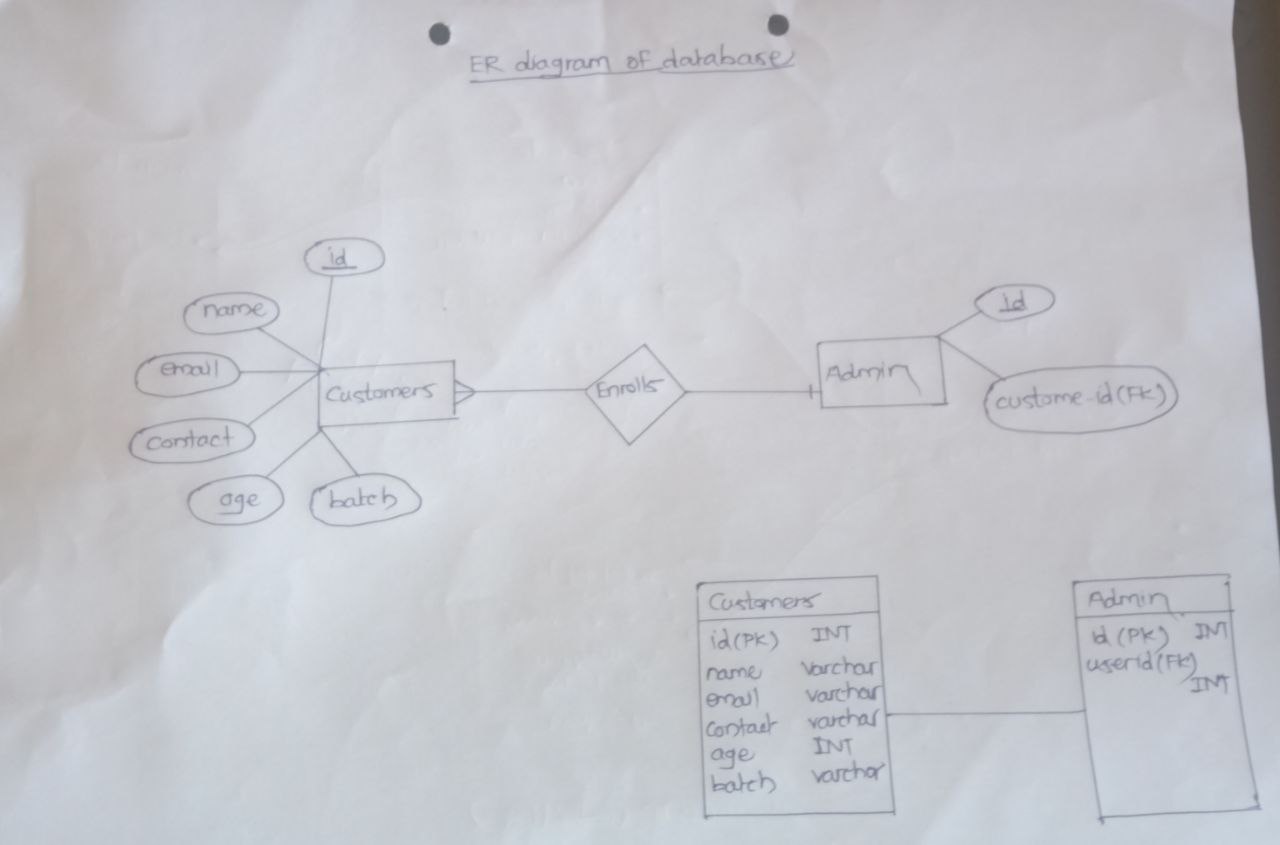 ER diagram of database
id
name
email
contact
age
batch
Customers
Enrolls
Admin
id
custome-id(FK)
Customers
id(PK) INT
name varchar
email varchar
contact varchar
age INT
batch varchar
Admin
id (PK) INT
userid(FK)
INT